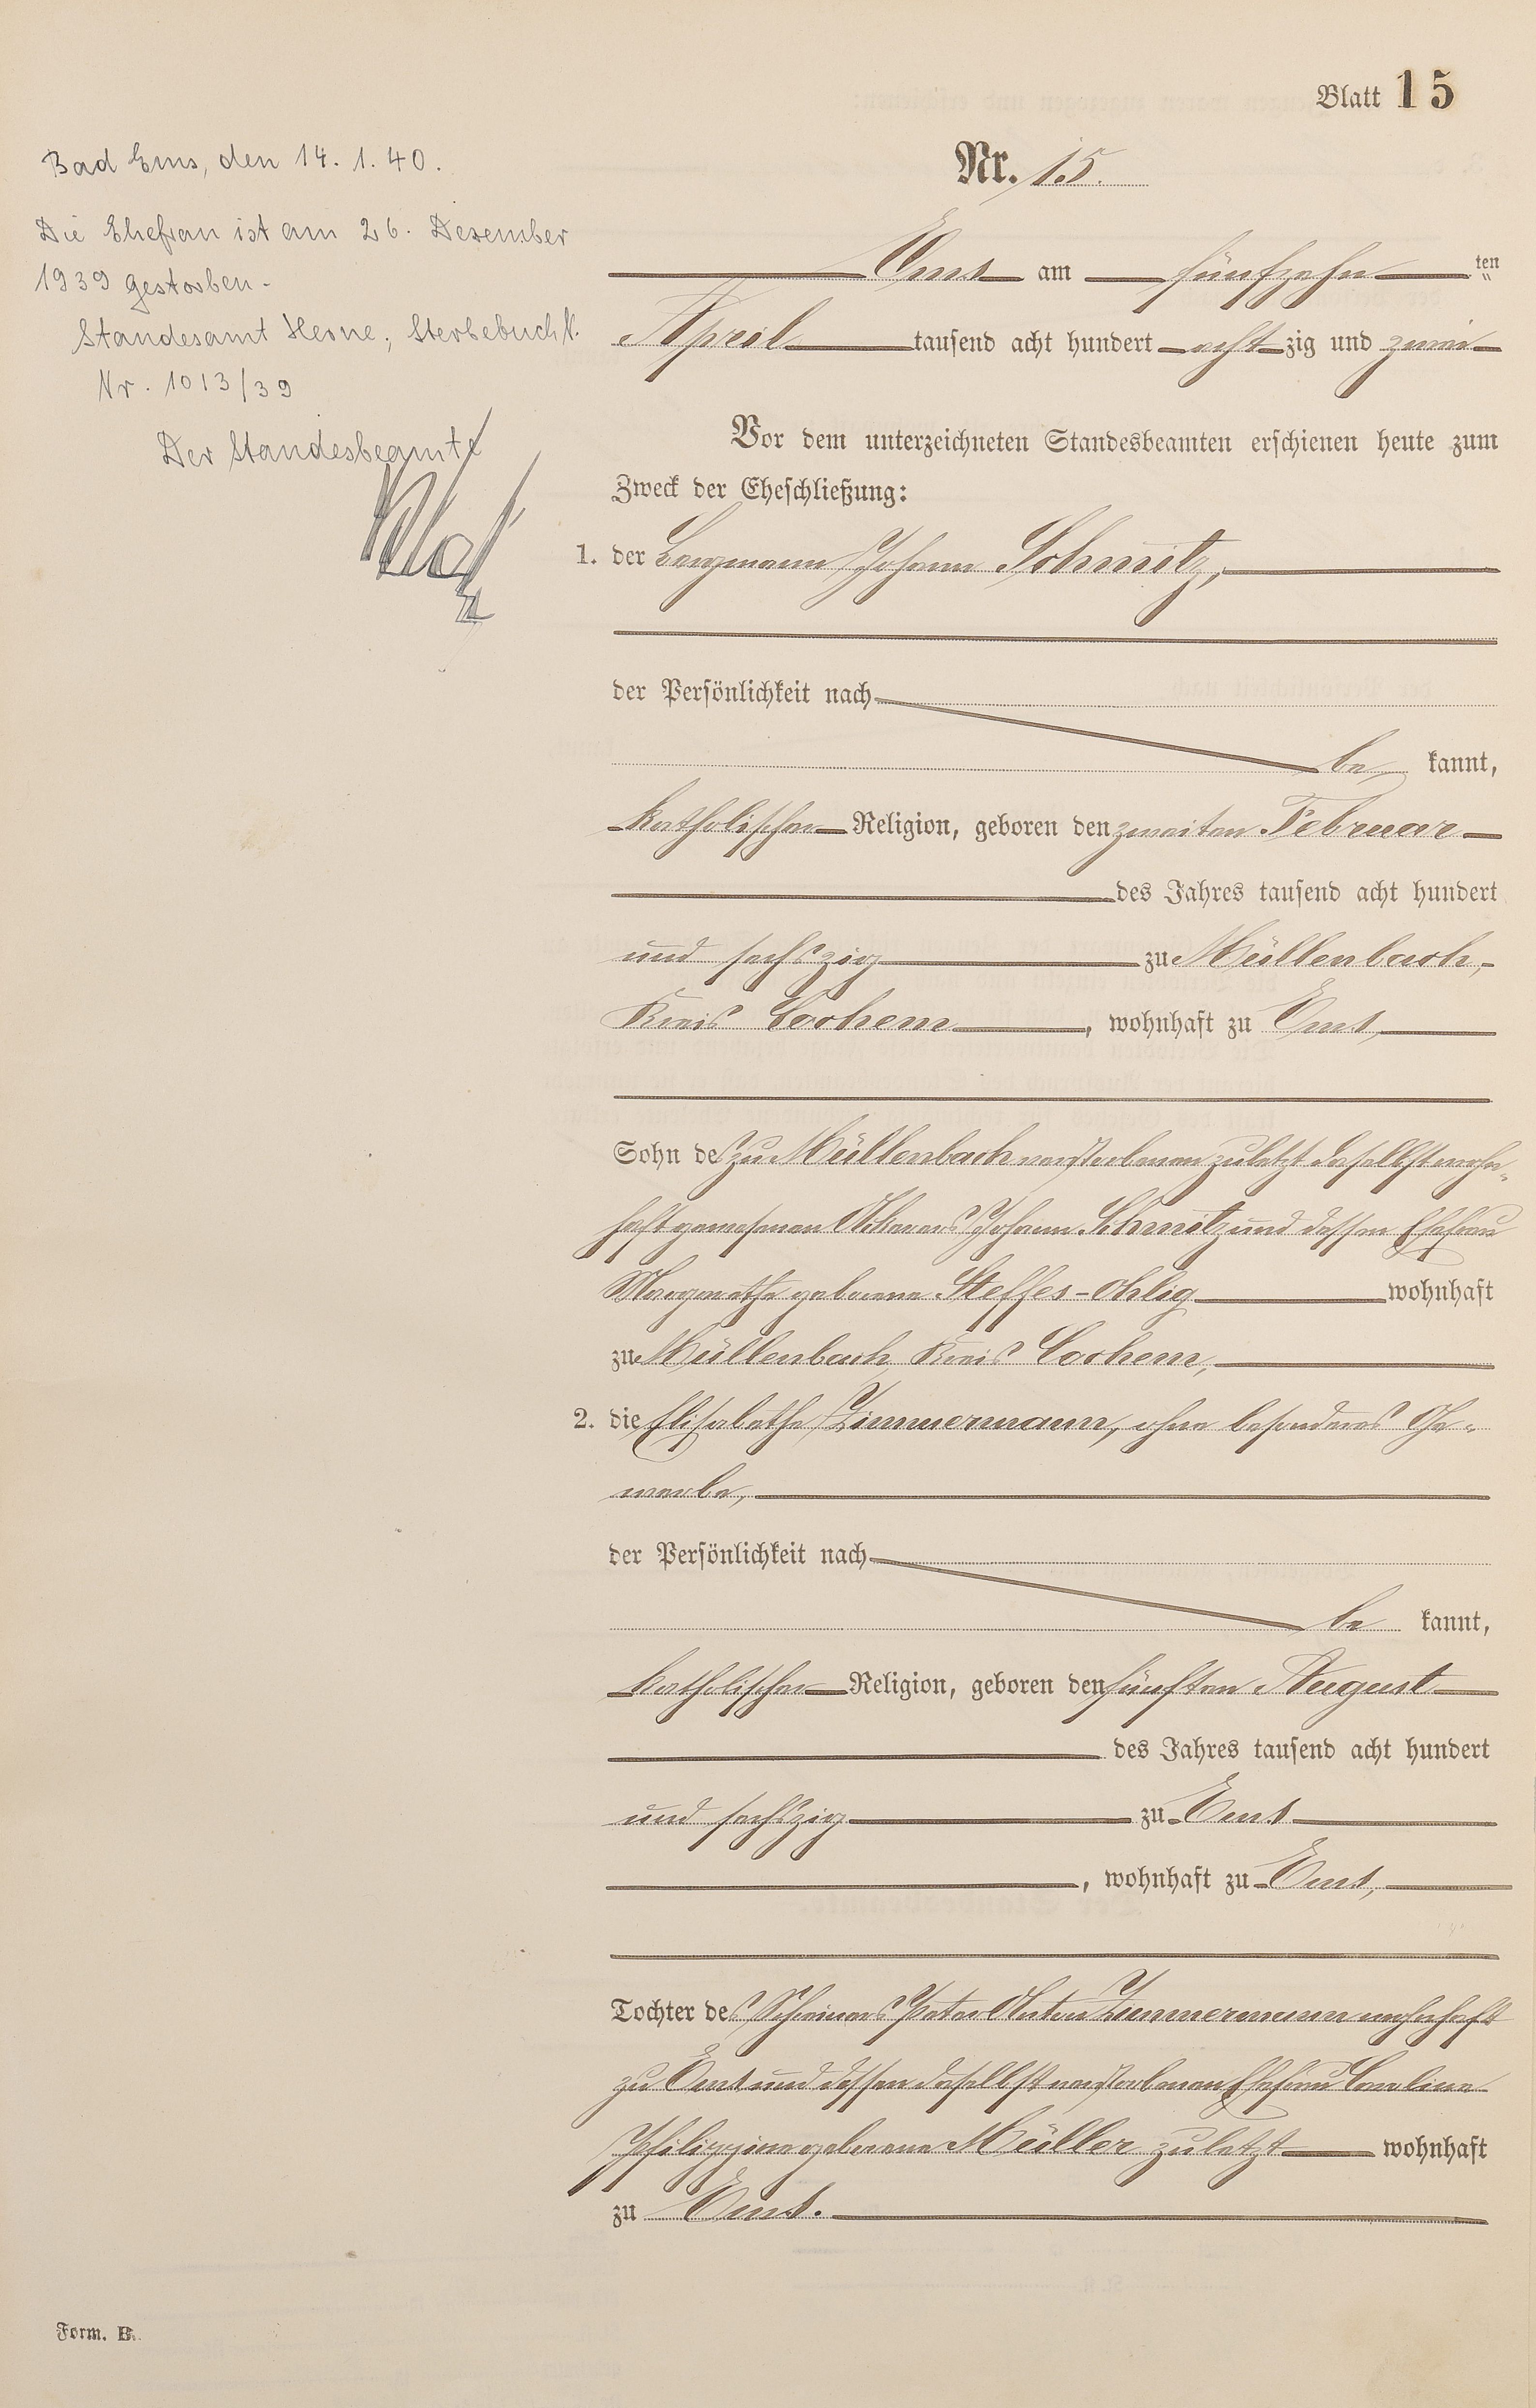 Blatt 15
Nr. 15.
Bad Ems, den 14. 1. 40.
Die Ehefrau ist am 26. Dezember
1939 gestorben.
Standesamt Herne; Sterbebuch
Nr. 1013/39
Der Standesbeamte
Ems am fünfzehn ten
April tausend acht hundert acht zig und zwei
Vor dem unterzeichneten Standesbeamten erschienen heute zum
Zweck der Eheschließung:
1. der Bergmann Johann Schmitz,
der Persönlichkeit nach
be kannt,
katholischer Religion, geboren den zweiten Februar
des Jahres tausend acht hundert
und sechszig zu Müllenbach,
Kreis Cochem, wohnhaft zu Ems,
Sohn des zu Müllenbach verstorbenen zuletzt daselbst wohn-
haft gewesenen Ackerers Johann Schmitz und dessen Ehefrau
Margarethe geborene Steffes-Ohlig wohnhaft
zu Müllenbach, Kreis Cochem,
2. die Elisabethe Zimmermann, ohne besonderes Ge-
werbe,
der Persönlichkeit nach
be kannt,
katholischer Religion, geboren den fünften August
des Jahres tausend acht hundert
und sechszig zu Ems
, wohnhaft zu Ems,
Tochter des Schreiners Peter Anton Zimmermann wohnhaft
zu Ems und dessen daselbst verstorbenen Ehefrau Caroline
Philippine geborene Müller zuletzt wohnhaft
zu Ems.
Form. B.